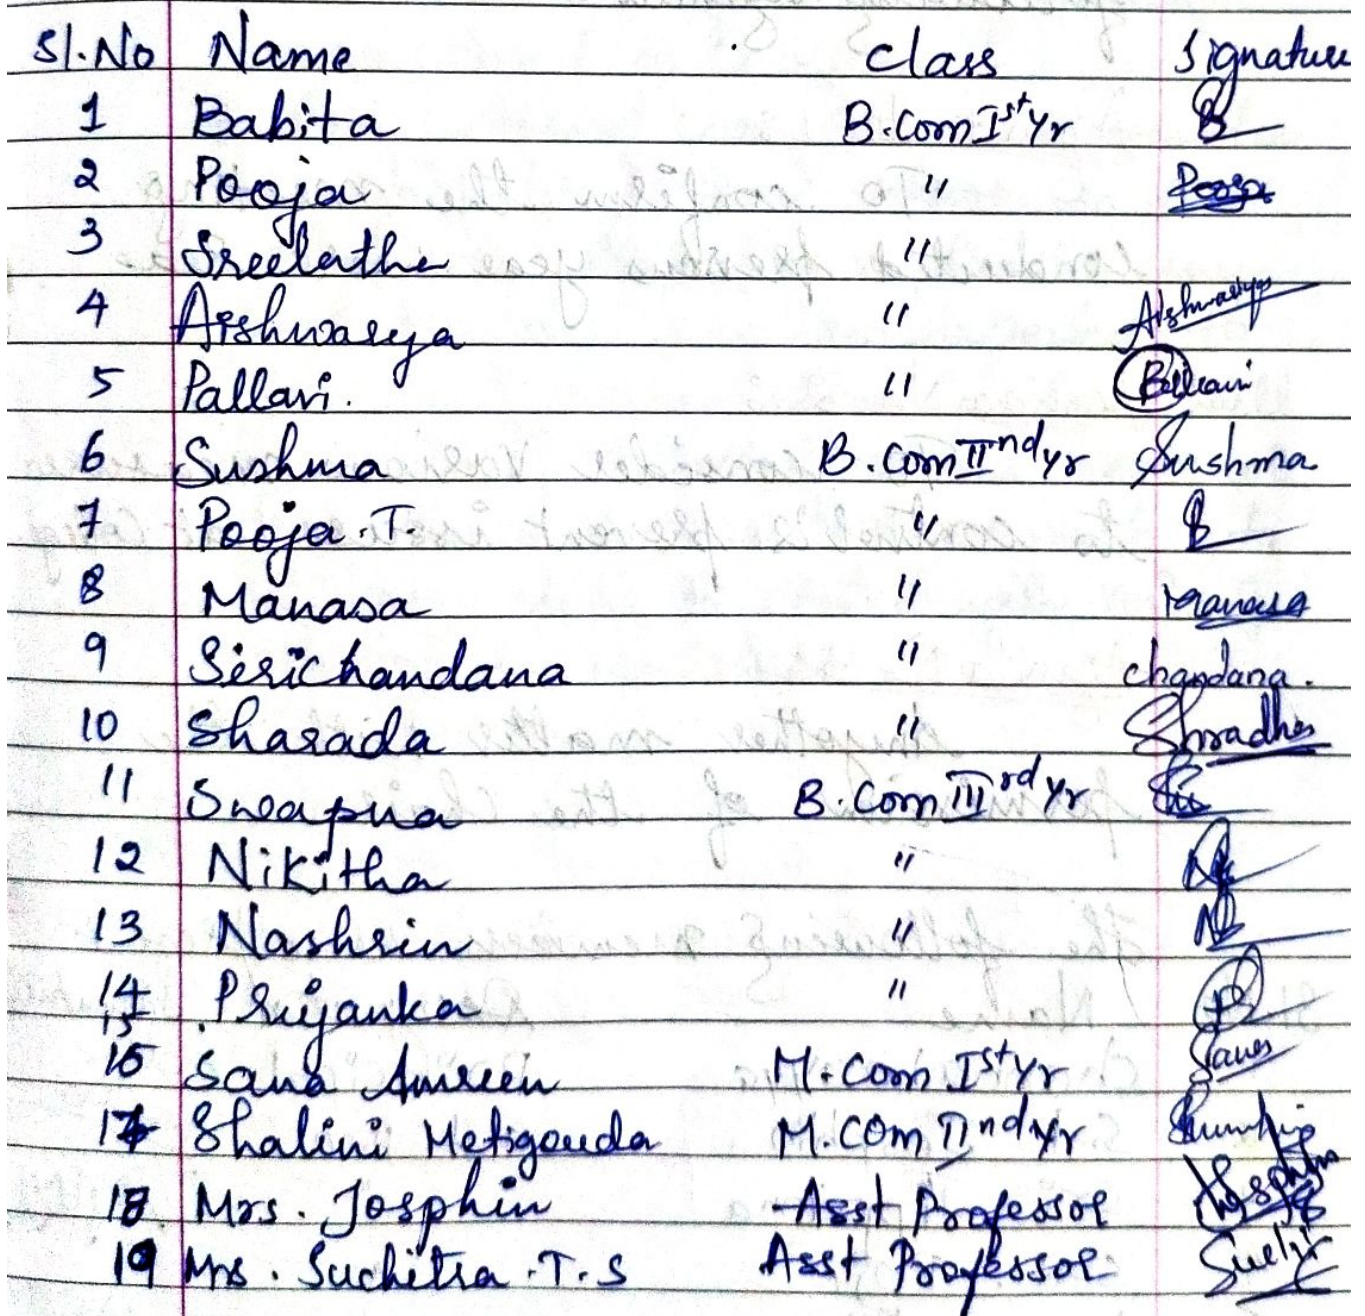 Sl.No Name Class Signature
1 Babita B.Com Ist Yr
2 Pooja " Pooja
3 Sreelatha "
4 Aishwarya " Aishwarya
5 Pallavi. "
6 Sushma B.Com IInd yr Sushma
7 Pooja.T. "
8 Manasa " Manasa
9 Sirichandana " chandana.
10 Sharada " Shradha
11 Swapna B.Com IIIrd Yr
12 Nikitha "
13 Nashrin "
14 Priyanka "
15
16 Sana Amreen M.Com Ist Yr
17 Shalini Metigouda M.Com IInd yr
18 Mrs. Josphin Asst Professor
19 Mrs. Suchitra.T.S Asst Professor